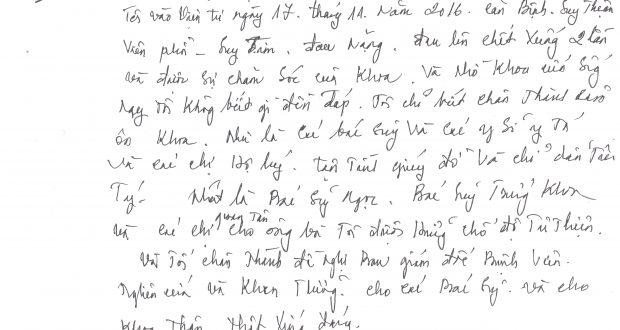 Tôi vào Viện từ ngày 17. tháng 11. năm 2016. căn Bệnh. Suy Thận
Viêm phổi - Suy Tim. đau Nặng. đau lên chết Xuống 2 lần
và được Sự chăm Sóc của Khoa. Và Nhờ Khoa cứu Sống
Nay tôi Không biết gì đền đáp. Tôi chỉ biết chân Thành
ơn Khoa. Như là các bác Sỹ Và các y Sĩ y Tá
Và các chị Hộ lý. tận Tình giúp đỡ Và chỉ dẫn Tận
Tụy. Nhất là Bác Sỹ Ngọc. Bác Sỹ Trưởng Khoa
và các chị quan tâm cho ông và Tôi được chế độ Từ Thiện.
Và Tôi chân Thành đề nghị Ban giám đốc Bệnh Viện.
Nghiên cứu và Khen Thưởng. cho các Bác Sỹ. và cho
Khoa Thận. Thật Xứng đáng.